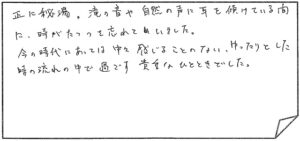 正に秘湯。滝の音や自然の声に耳を傾けている間
に、時がたつって忘れてしまいました。
今の時代にあっては中々感じることのない、ゆったりとした
時の流れの中で過ごす貴重なひとときでした。